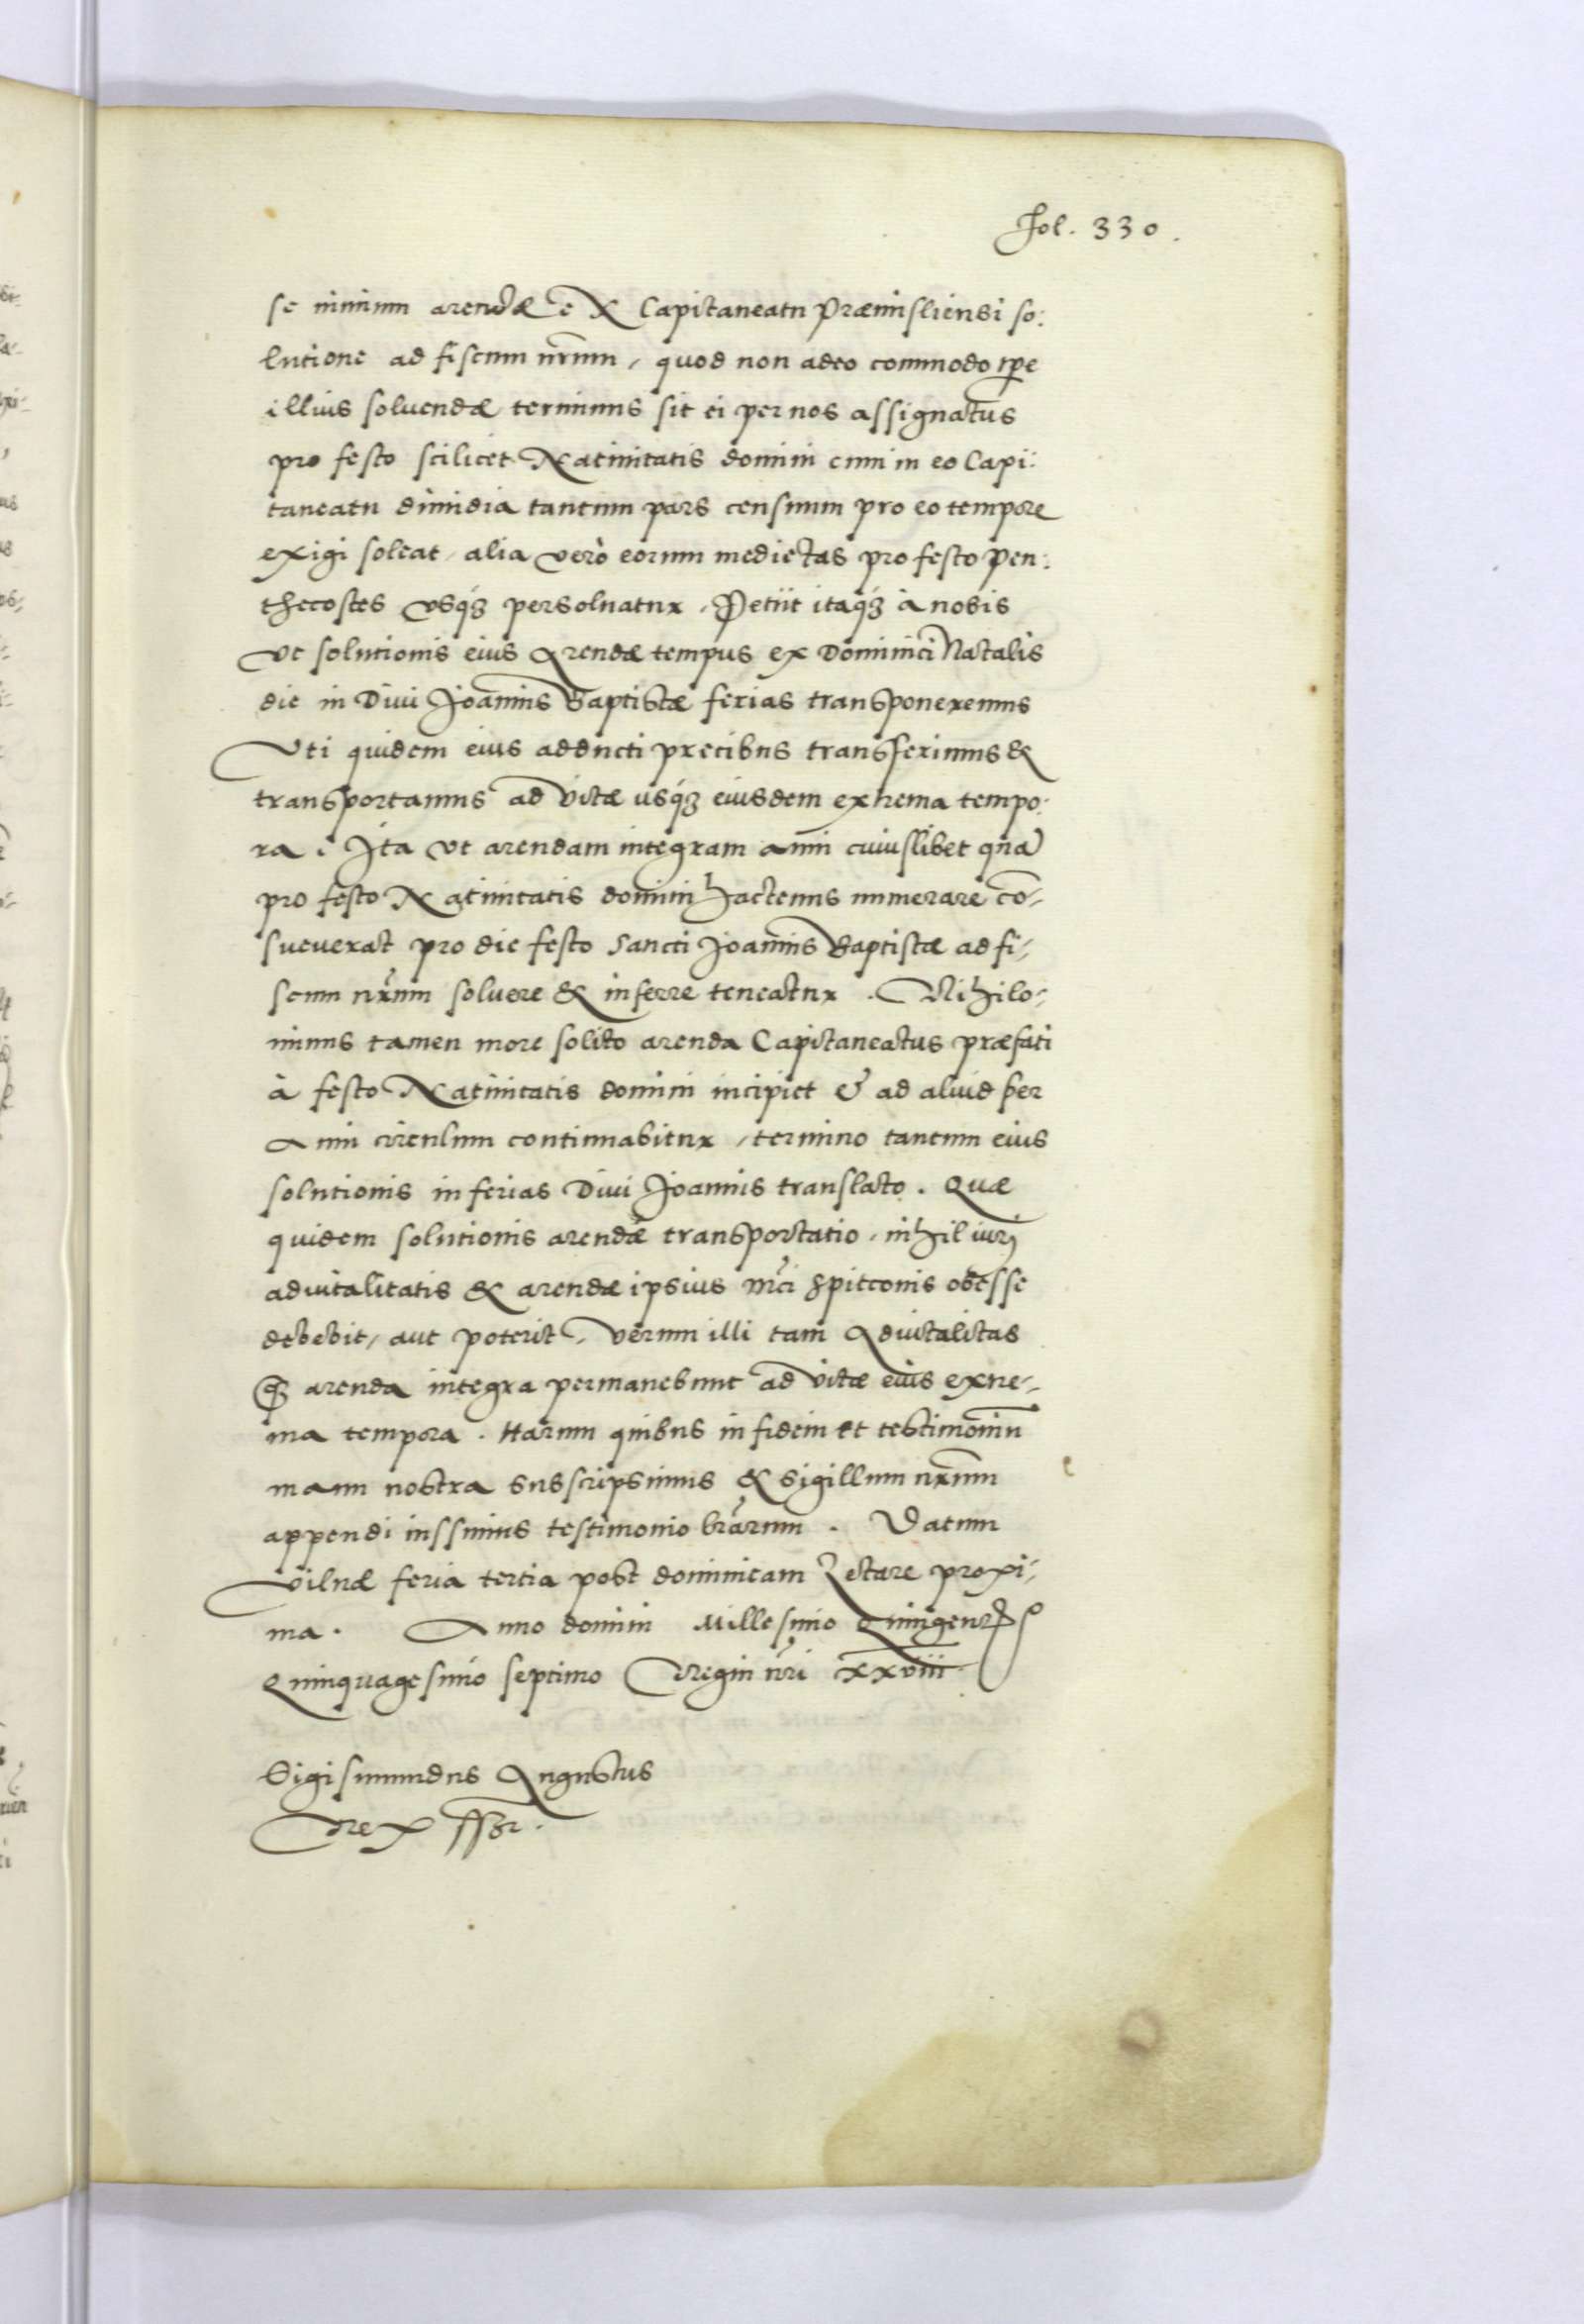 fol. 330.
se nimium arendæ ex Capitaneatu Præmisliensi so:
lutione ad fiscum nrum, quod non adeo commodo tpe
illius soluendæ terminus sit ei per nos assignatus
pro festo scilicet Natiuitatis domini cum in eo Capi:
taneatu dimidia tantum pars censuum pro eo tempore
exigi soleat, alia verò eorum medietas pro festo Pen:
thecostes vsq3 persoluatur. Petiit itaq3 à nobis
vt solutionis eius Arendæ tempus ex Dominici Natalis
die in Diui Joannis Baptistæ ferias transponeremus
Vti quidem eius adducti precibus transferimus &
transportamus ad vitæ usq3 eiusdem extrema tempo:
ra. Ita vt arendam integram anni cuiuslibet quā
pro festo Natiuitatis domini hactenus numerare cō-
sueuerat pro die festo Sancti Joannis Baptistæ ad fi-
scum nrum soluere & inferre teneatur. Nihilo-
minus tamen more solito arenda Capitaneatus præfati
à festo Natiuitatis domini incipiet & ad aliud per
Anni circulum continuabitur, termino tantum eius
solutionis in ferias Diui Joannis translato. Quæ
quidem solutionis arendæ transportatio, nihil iuri
aduitalitatis & arendæ ipsius Mci Spitconis obesse
debebit, aut poterit, verum illi tam Aduitalitas
q3 arenda integra permanebunt ad vitæ eius extre-
ma tempora. Harum quibus in fidem et testimoniū
manu nostra subscripsimus & sigillum nrum
appendi iussimus testimonio lrarum. Datum
Vilnæ feria tertia post dominicam Letare proxi-
ma. Anno domini Millesimo Quingentes⁰
Quinquagesimo septimo Regni nri xxviii
Sigismundus Augustus
Rex ssr.